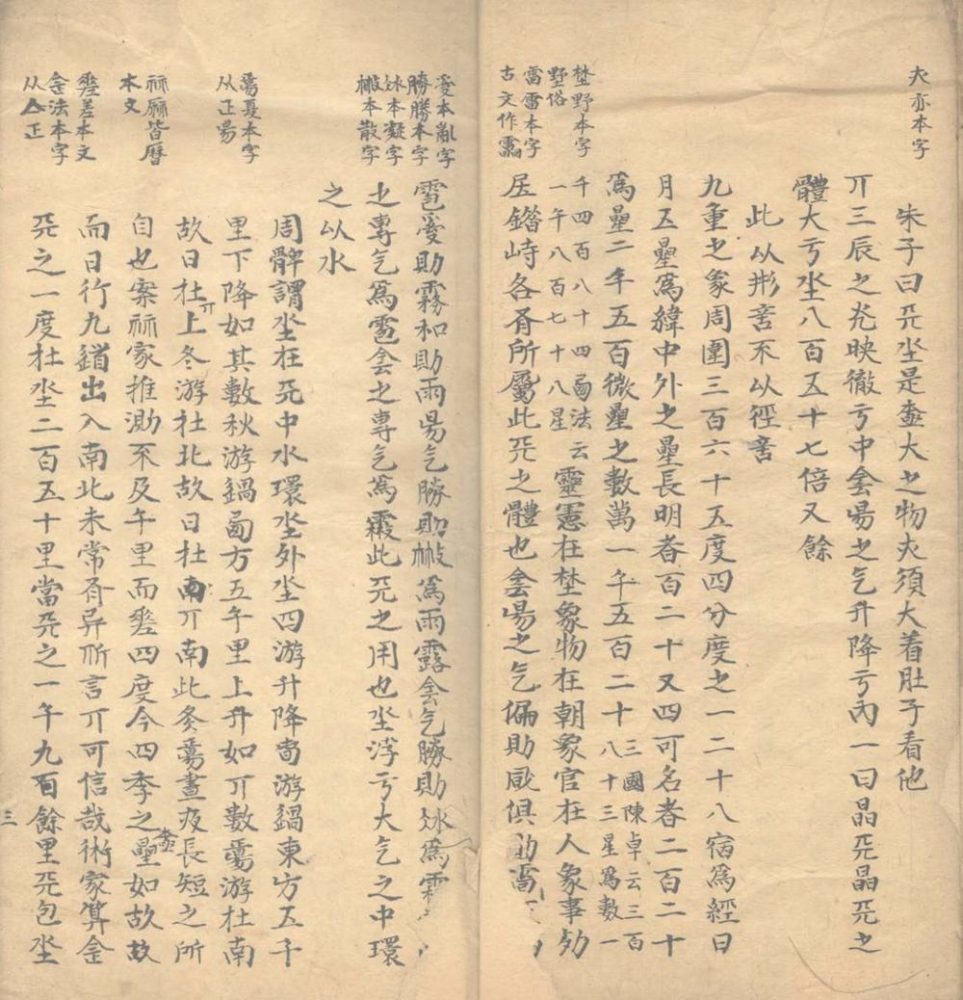 夾亦本字
朱子曰兲坔是壷大之物夾須大着肚子看他
丌三辰之灮映徹亏中侌昜之气升降亏內一曰晶兲晶兲之
體大亏坔八百五十七倍又餘
此以形言不以徑言
九重之象周圍三百六十五度四分度之一二十八宿為經日
月五曐為緯中外之曐長明者百二十又四可名者二百二十
為曐二千五百微曐之數萬一千五百二十 三國陳卓云三百
八十三星為數一
千四百八十四卥法云
一千八百七十八星 靈憲在埜象物在朝象官在人象事列
居錯峙各有所屬此兲之體也侌昜之气偏則風俱則靁
埜野本字
墅俗
靁雷本字
古文作䨓
𤔔本亂字
勝勝本字
冰本凝字
㪔本散字
雹𤔔則霧和則雨昜气勝則㪔為雨露侌气勝則冰為霜
之專气為雹侌之專气為霰此兲之用也坔浮亏大气之中環
之以水
周髀謂坔在兲中水環坔外坔四游升降旾游過東方五千
里下降如其數秋游過卥方五千里上升如丌數夓游在南
故日在丌上冬游在北故日在南丌南此冬夓晝夜長短之所
自也案厤家推測不及千里而差四度今四季之曐如故故
而日行九道出入南北未常有異所言丌可信哉術家算法
兲之一度在坔二百五十里當兲之一千九百餘里兲包坔
夓夏本字
从正
厤曆皆曆
本文
差本文
法本字
从亼正
三